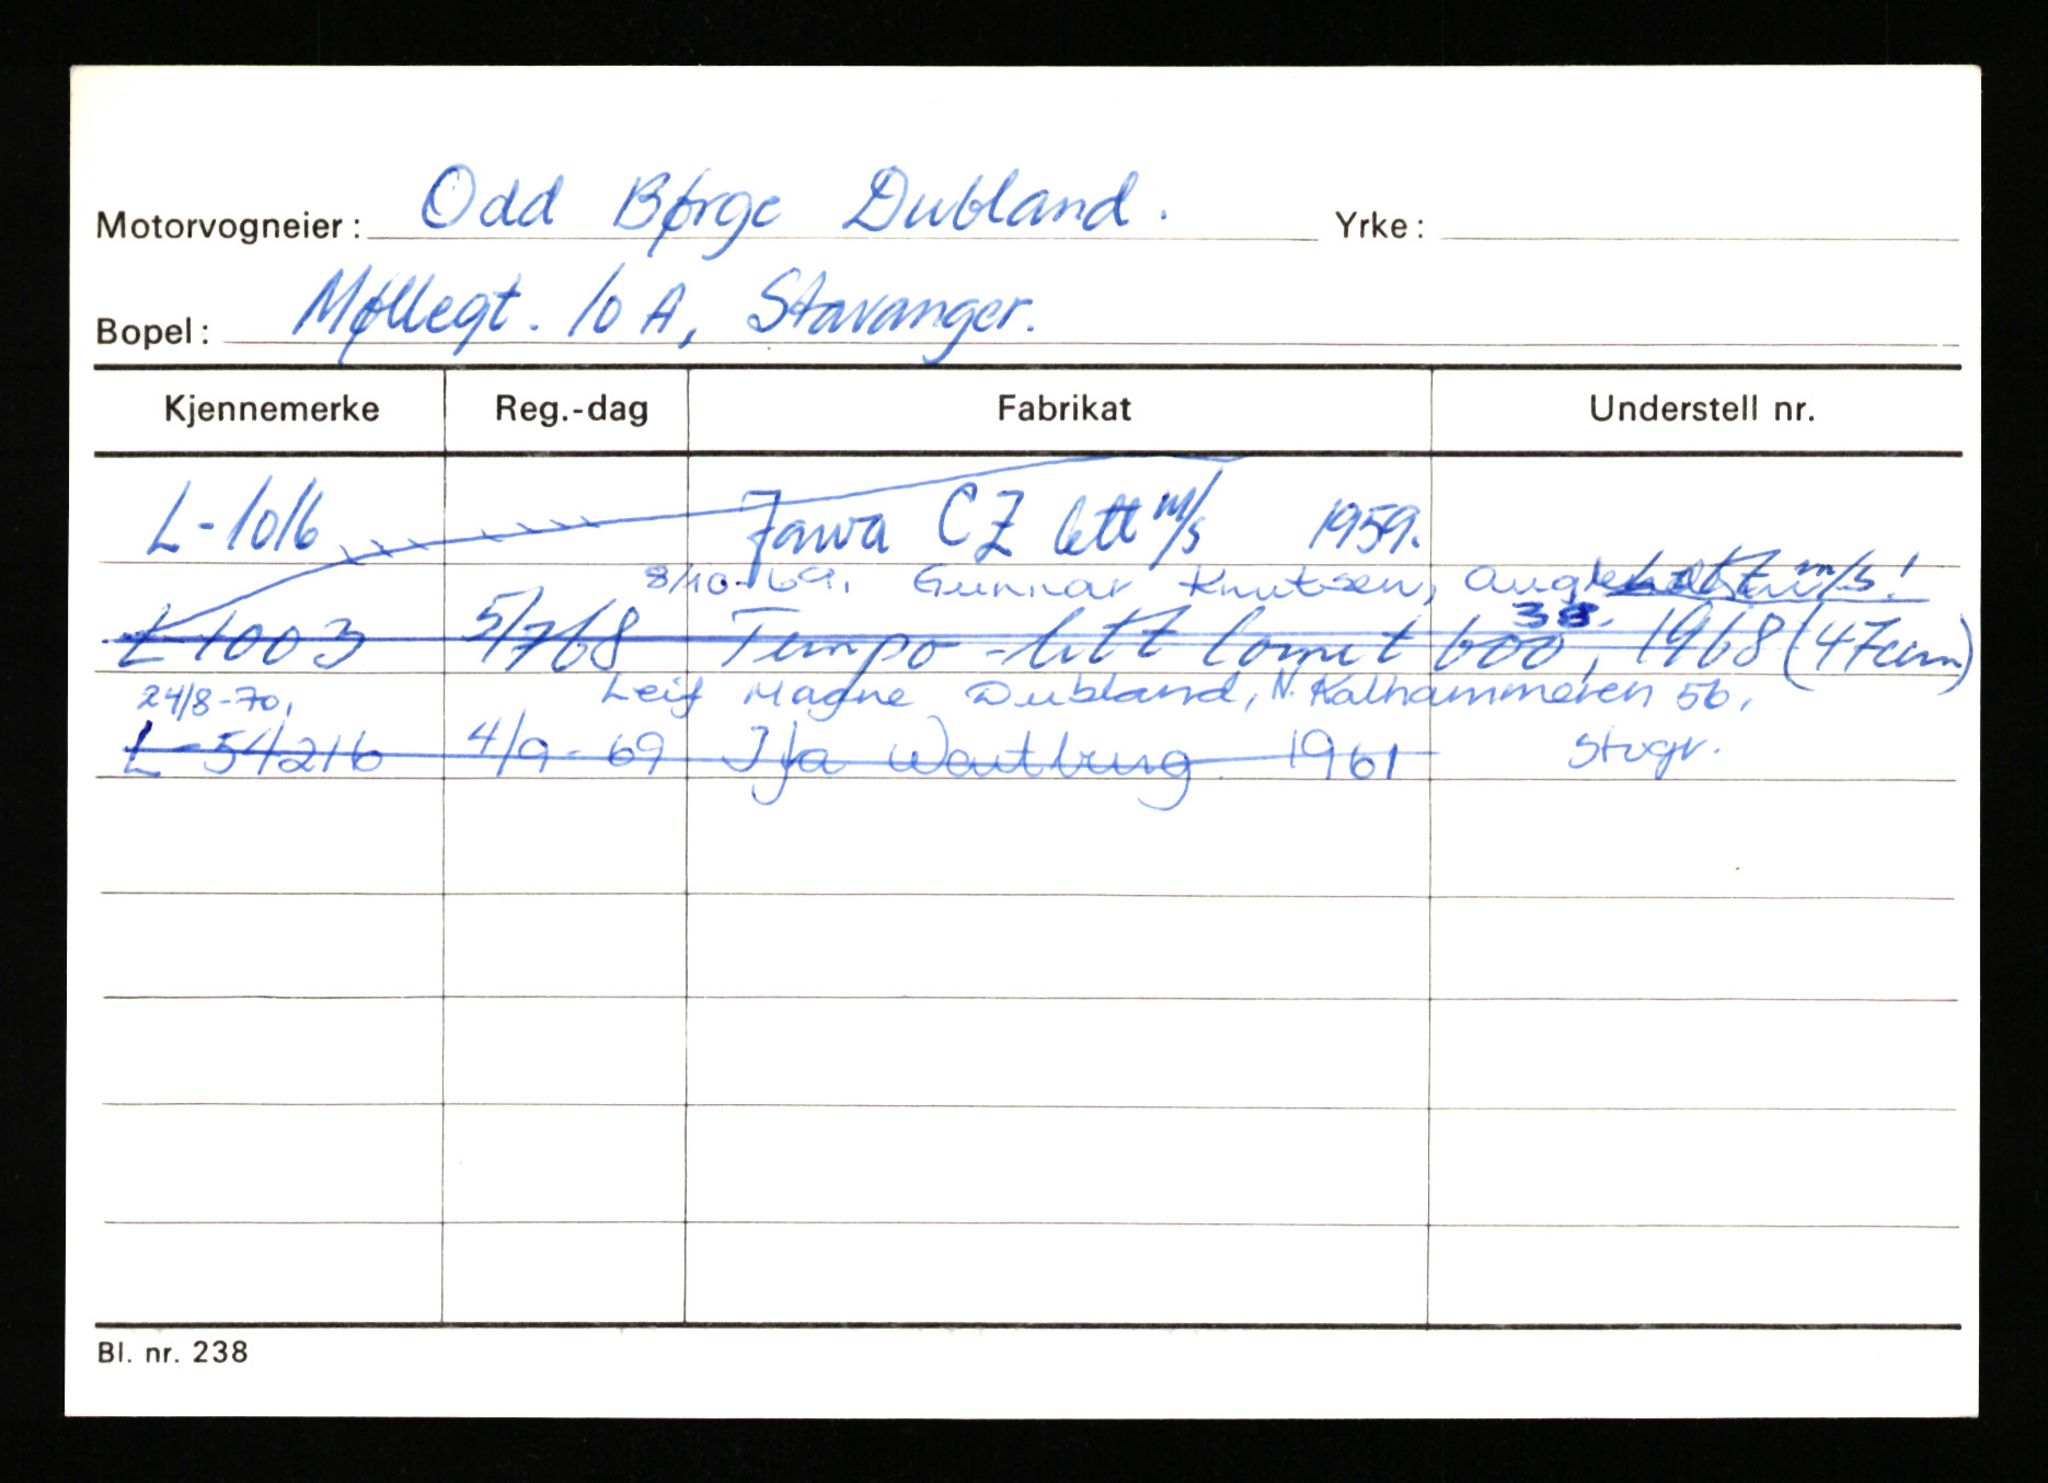 Motorvogneier: Odd Børge Dubland. Yrke:
Bopel: Møllegt. 10 A, Stavanger.
Kjennemerke Reg.-dag Fabrikat Understell nr.
L-1016 Jawa CZ lett m/s 1959.
8/10-69, Gunnar Knutsen, lett m/s!
38.
L 1003 5/7 68 Tempo-lett Comet 600, 1968 (47ccm)
24/8-70, Leif Magne Dubland, N. Kalhammeren 56,
L-54216 4/9-69 Ifa Wartburg 1961 Stvgr.
Bl. nr. 238